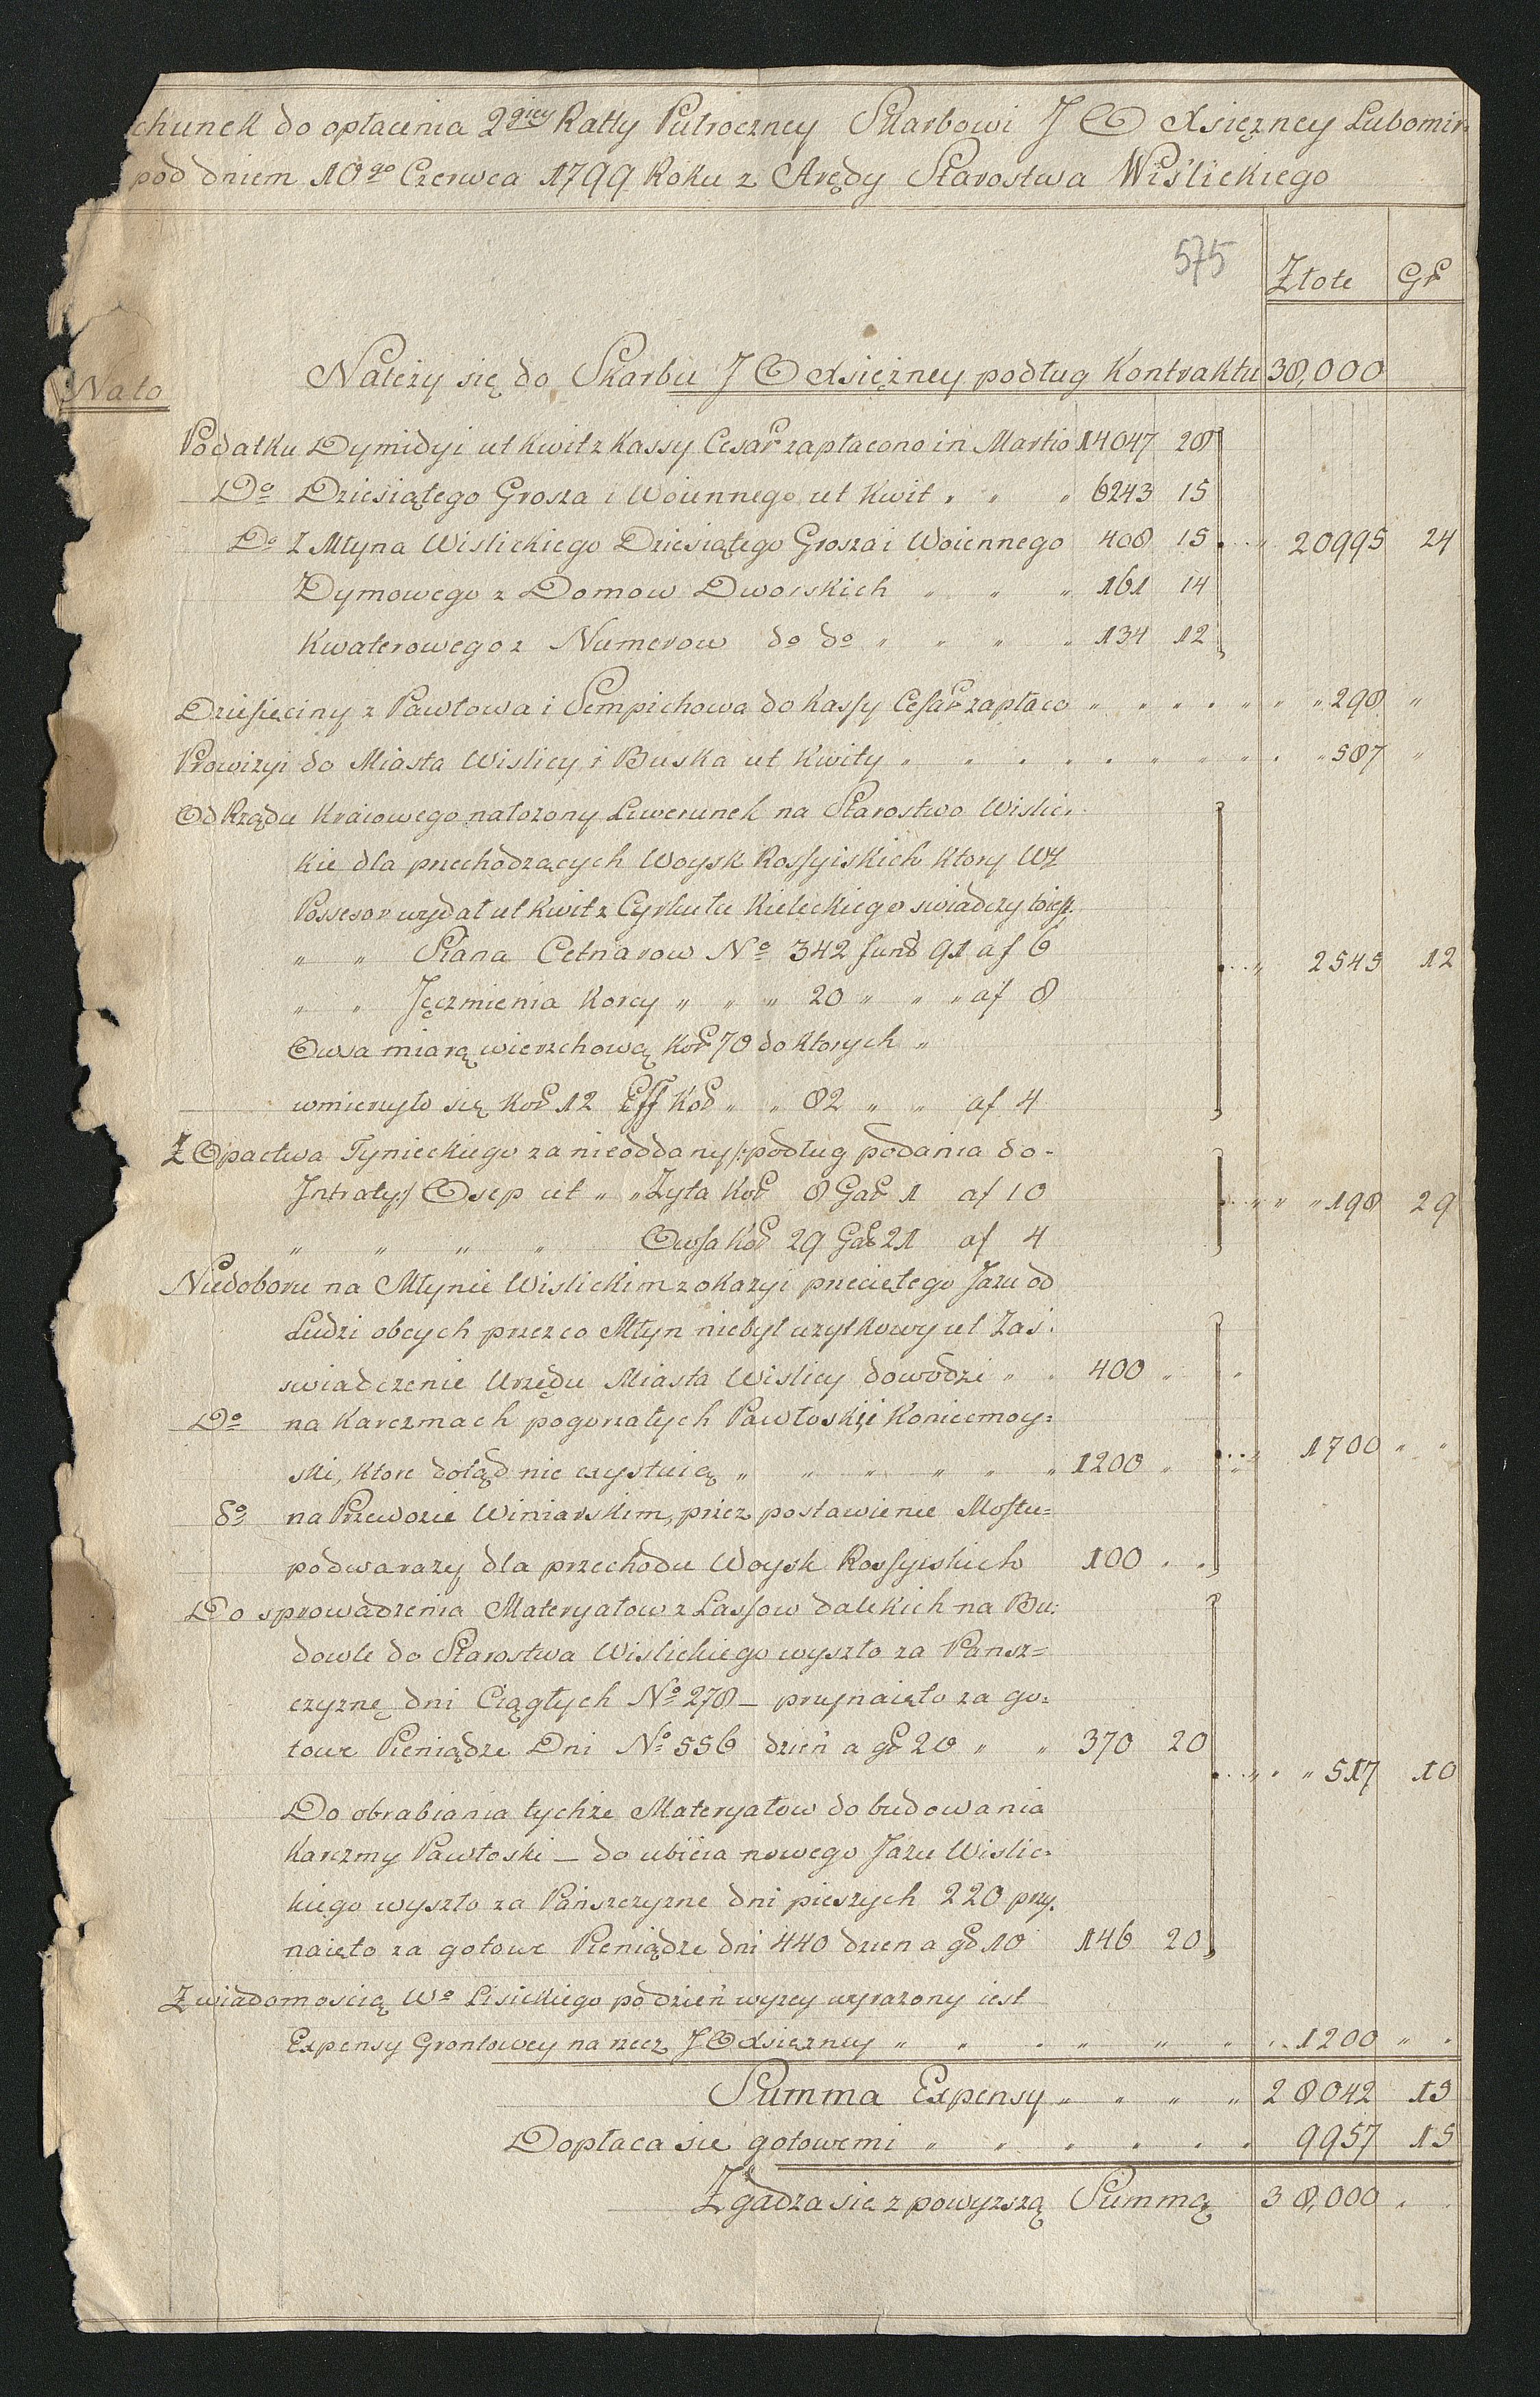 chunek do opłacenia 2giey Ratty Pułroczney Skarbowi J O Xsiężney Lubomir:
pod dniem 10go Czerwca 1799 Roku z Arędy Starostwa Wiślickiego
575
Złote Gr
Należy się do Skarbu J O Xsiężney podług Kontraktu 38,000
Nato
Podatku Dymidyi ut Kwit z Kassy Cesar zapłacono in Martio 14047 28
Do Dziesiątego Grosza i Woiennego ut Kwit „ „ „ 6243 15
Do Z Młyna Wislickiego Dziesiątego Grosza i Woiennego 408 15 „ 20995 24
Dymowego z Domow Dworskich „ „ „ 161 14
Kwaterowego z Numerow do do „ „ „ „ 134 12
Dziesięciny z Pawłowa i Sempichowa do Kassy Cesar zapłaco „ „ „ „ „ „ „ 298 „
Prowizyi do Miasta Wislicy i Buska ut Kwity „ „ „ „ „ „ „ „ „ „ 587 „
Od Rządu Kraiowego nałozony Liwerunek na Starostwo Wislic:
kie dla przechodzących Woysk Rossyiskich ktory WJ
Possesor wydał ut Kwit z Cyrkułu Kieleckiego swiadczy
„ „ Siana Cetnarow No 342 fund 91 af 6
„ 2545 12
„ „ Jęczmienia Korcy „ „ „ 20 „ „ „ af 8
Owsa miarą wierzchową Kor 70 do ktorych „
wmierzyło się Kor 12 Eff Kor „ „ 82 „ „ af 4
Z Opactwa Tynieckiego za nieoddany /:podług podania do-
Intraty:/ Osep ut „ „ Zyta Kor 8 Gar 1 af 10
„ „ „ 198 29
„ „ „ „ Owsa Kor 29 Gar 21 af 4
Niedoboru na Młynie Wislickim z okazyi przeciętego Jazu od
Ludzi obcych przez co Młyn niebył uzytkowy ut Zas:
swiadczenie Urzędu Miasta Wislicy dowodzi „ „ 400 „ „
Do na Karczmach pogorzałych Pawłoski i Koniecmoy=
„ 1700 „ „
ski, ktore dotąd nie exystuią „ „ „ „ „ „ 1200 „
do na Przewozie Winiarskim, przez postawienie Mostu=
podwarazy dla przechodu Woysk Rossyiskich 100 „ „
Do sprowadzenia Materyałow z Lassow dalekich na Bu:
dowle do Starostwa Wislickiego wyszło za Pansz=
czyznę dni Ciągłych No 278 – przynaięto za go:
towe Pieniądze Dni No 556 dzień a gr 20 „ „ 370 20
„ „ „ 517 10
Do obrabiania tychże Materyałow do budowania
Karczmy Pawłoski – do ubicia nowego Jazu Wislic:
kiego wyszło za Pańszczyzne dni pieszych 220 przy:
naięto za gotowe Pieniądze dni 440 dzien a gr 10 146 20
Z wiadomoscią Wo Lisickiego podzień wyzey wyrazony iest
Expensy Grontowey na rzecz J O Xsiężney „ „ „ „ „ „ „ 1200 „ „
Summa Expensy „ „ „ „ 28042 15
Dopłaca sie gotowemi „ „ „ „ „ „ 9957 15
Zgadza sie z powyzszą Summą 38,000 „ „